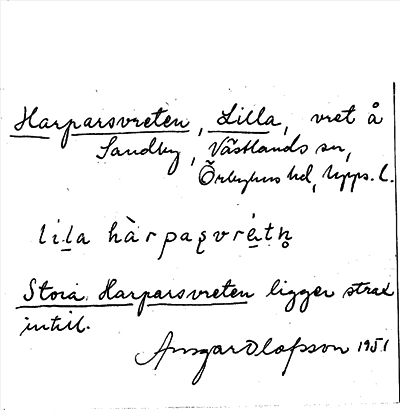 Harparsvreten, Lilla, vret å
Sandby, Västlands sn,
Örbyhus hd, Upps. l.
lila hàrpaʂvréːtn̥
Stora Harparsvreten ligger strax
intill.
Ansgar Olofsson 1951